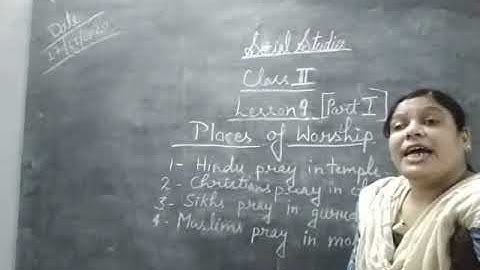 Date
Social Studies
Class II
Lesson 9 [Part I]
Places of Worship
1 - Hindu pray in temple
2 - Christians pray in c
3 - Sikhs pray in gurud
4 - Muslims pray in mo